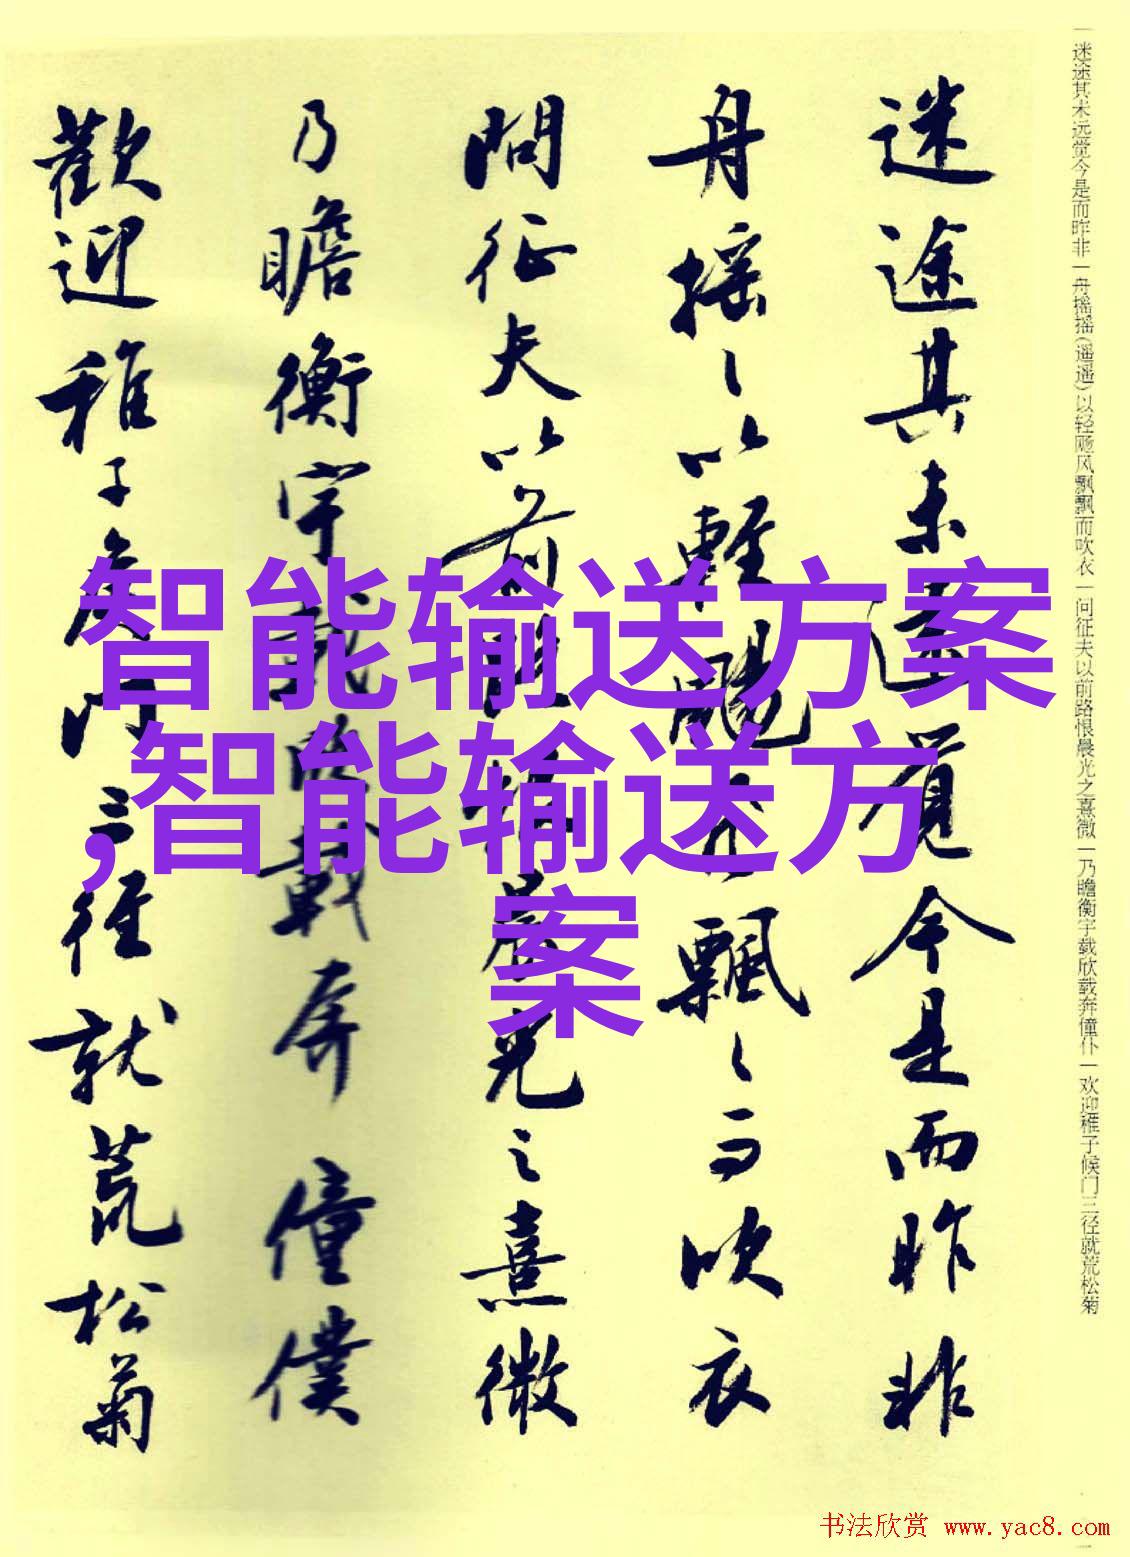 迷途其未远觉今是而昨非一舟摇摇(遥遥)以轻飏风飘飘而吹衣一问征夫以前路恨晨光之熹微一乃瞻衡宇载欣载奔僮仆一欢迎稚子候门三径就荒松菊
迷途其未遠覺今是而昨非
舟摇々以輕颺風飄々而吹衣
問征夫以前路恨晨光之熹微
乃瞻衡宇載欣載奔僮僕
歡迎稚子候門三徑就荒松菊
智能输送方案
,智能输送方
案
书法欣赏 www.yac8.com